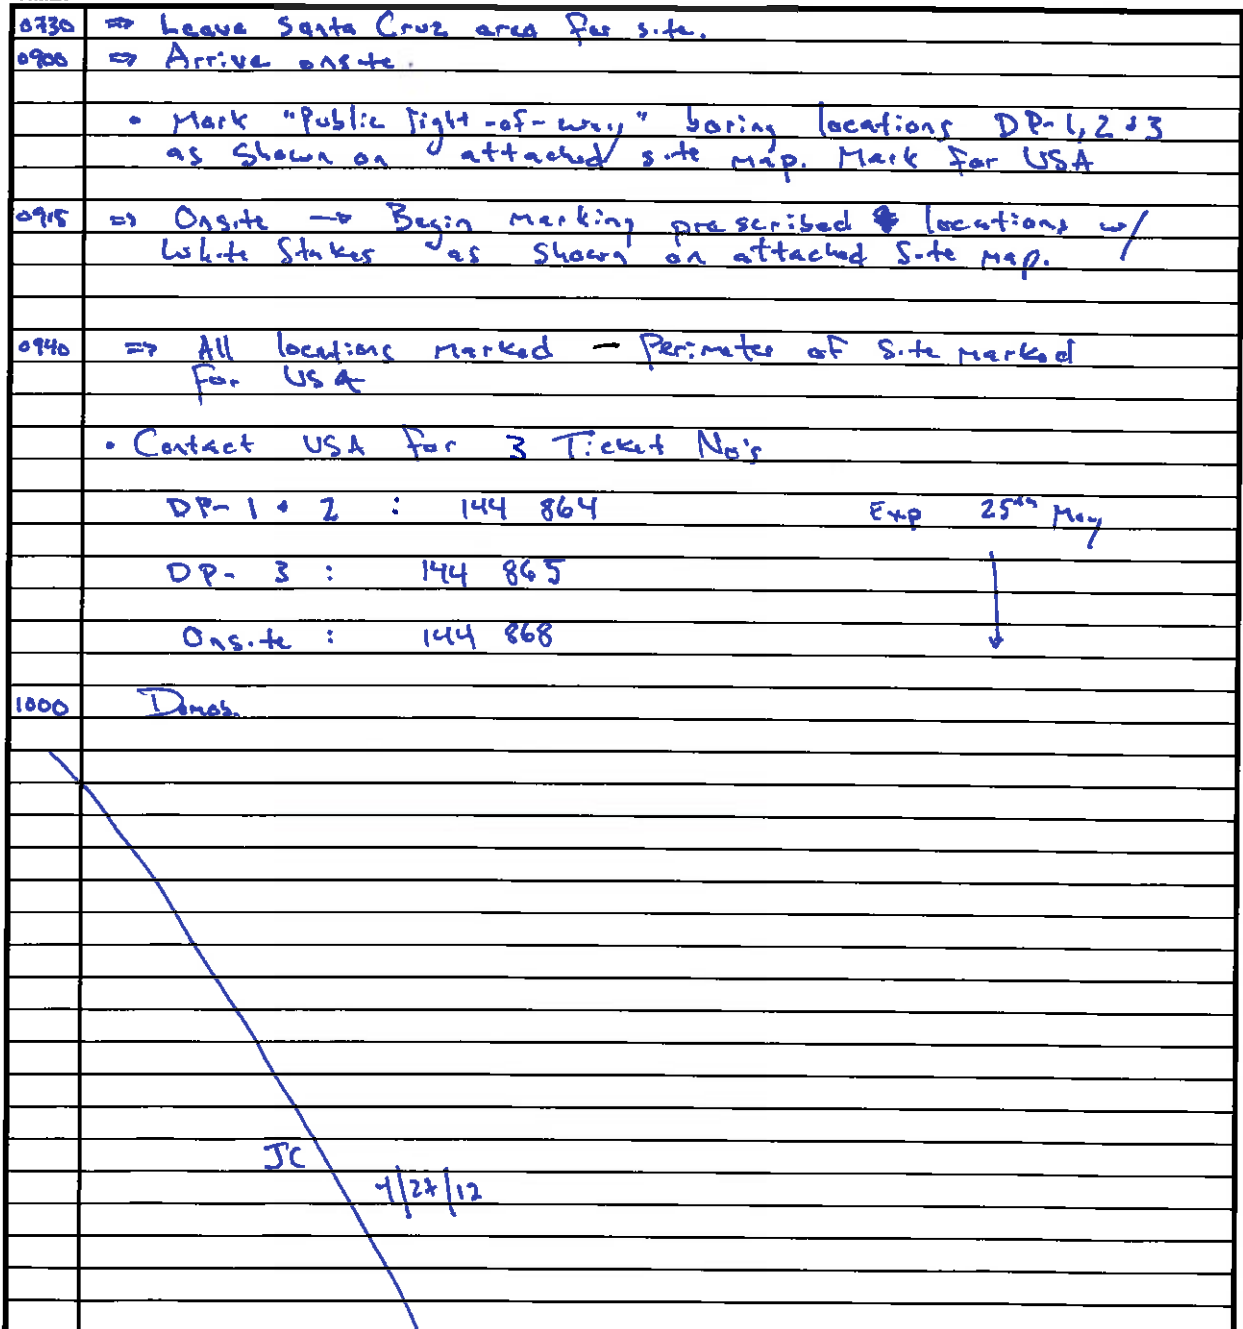 0730 ⇒ Leave Santa Cruz area for site.
0900 ⇒ Arrive onsite.
• Mark "Public right-of-way" boring locations DP-1, 2 & 3
as shown on attached site map. Mark for USA
0915 ⇒ Onsite → Begin marking prescribed locations w/
White Stakes as shown on attached Site Map.
0940 ⇒ All locations marked – Perimeter of Site marked
for USA
• Contact USA for 3 Ticket No's
DP-1 + 2 : 144 864 Exp 25th May
DP- 3 : 144 865
Onsite : 144 868
1000 Demob.
JC
4/27/12